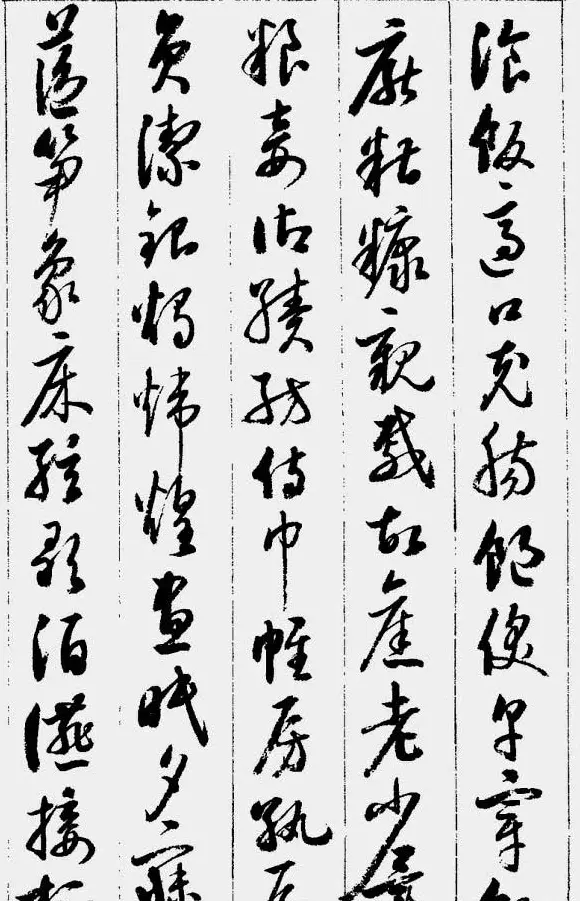 湌飯適口充腸飽飫亨宰
厭糟糠親戚故舊老少異
糧妾御績紡侍巾帷房紈
員潔銀燭煒煌晝眠夕寐
藍笋象床絃歌酒讌接杯